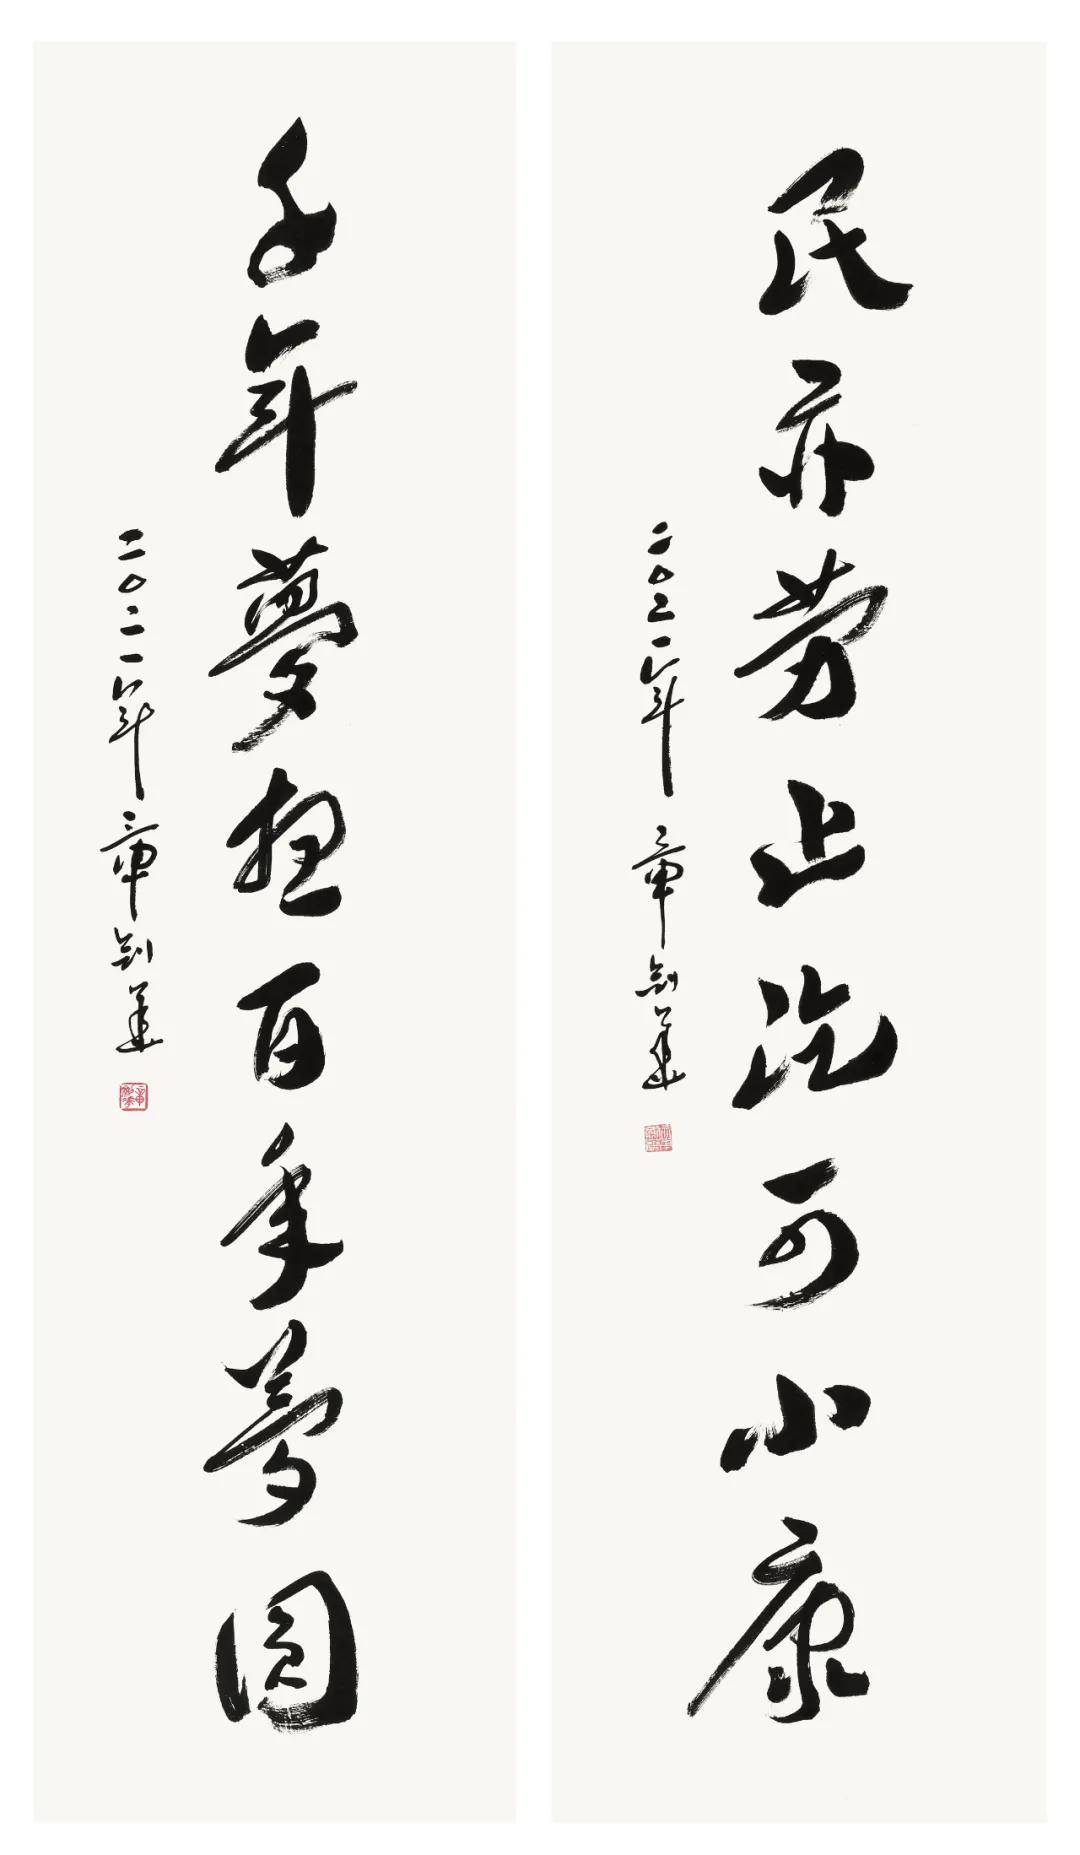 民亦劳止汔可小康
二〇二一年 章剑華
千年夢想百年夢圆
二〇二一年 章剑華